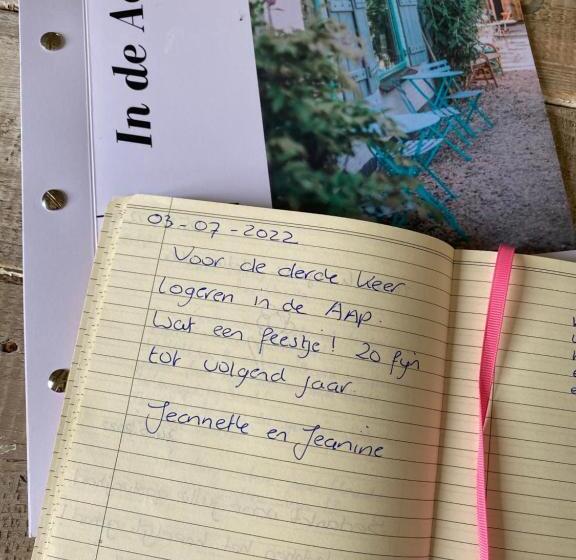 In de A
03-07-2022
Voor de derde keer
logeren in de AAP.
Wat een feestje! Zo fijn
tot volgend jaar.
Jeannette en Jeanine